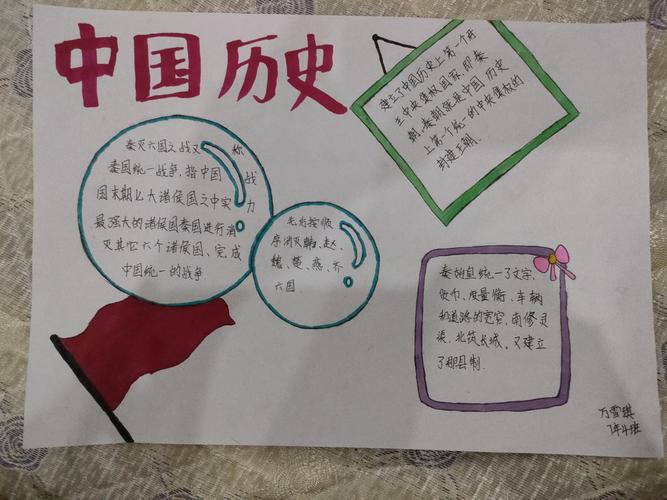 中国历史
秦灭六国之战又称
秦国统一战争,指中国战
国末期七大诸侯国之中实力
最强大的诸侯国秦国进行消
灭其它六个诸侯国、完成
中国统一的战争.
先后按顺
序消灭韩、赵、
魏、楚、燕、齐
六国
建立了中国历史上第一个君
主中央集权国家,即秦
朝,秦朝就是中国历史
上第一个统一的中央集权的
封建王朝.
秦始皇统一了文字、
货币、度量衡、车辆
和道路的宽窄,南修灵
渠,北筑长城,又建立
了郡县制.
万雪琪
7年4班